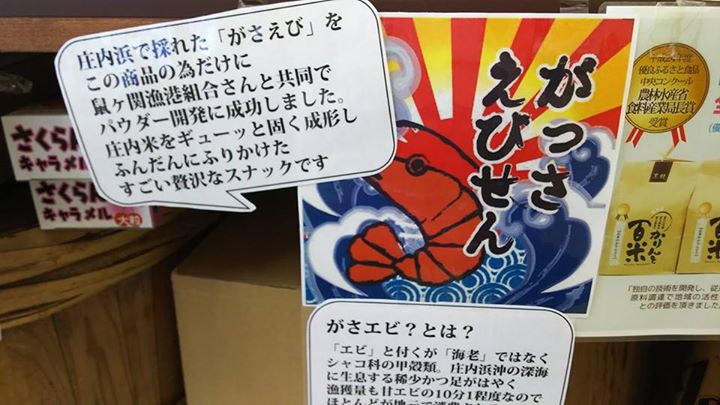 庄内浜で採れた「がさえび」を
この商品の為だけに
鼠ヶ関漁港組合さんと共同で
パウダー開発に成功しました。
庄内米をギューッと固く成形し
ふんだんにふりかけた
すごい贅沢なスナックです
がっさ
えびせん
がさエビ?とは?
「エビ」と付くが「海老」ではなく
シャコ科の甲殻類。庄内浜沖の深海
に生息する稀少かつ足がはやく
漁獲量も甘エビの10分1程度なので
さくらん
キャラメル
さくらん
キャラメル
優良ふるさと食品
中央コンクール
農林水産省
食料産業局長賞
受賞
黒糖
かりんと
百米
「独自の技術を開発し、従
原料調達で地域の活性
との評価を頂きました